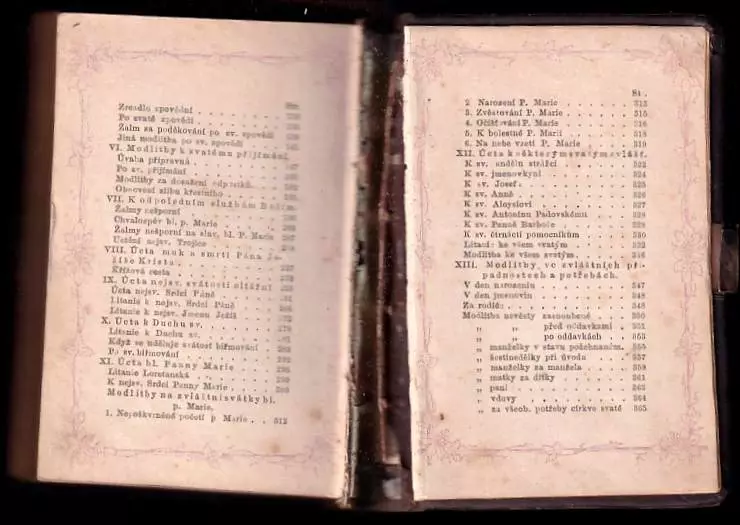 Str.
Zrcadlo zpovědní
Po svaté zpovědi
Žalm za poděkování po sv. zpovědi
Jiná modlitba po sv. zpovědi
VI. Modlitby k svatému přijímání.
Úvaha přípravná
Po sv. přijímání
Modlitby za dosažení odpustků
Obnovení slibu křestního
VII. K odpoledním službám
Žalmy nešporní
Chvalospěv bl. p. Marie
Žalmy nešporní na slav. bl. P. Marie
Uctění nejsv. Trojice
VIII. Úcta muk a smrti Pána Je-
žíše Krista.
Křížová cesta
IX. Úcta nejsv. svátosti oltářní
Úcta nejsv. Srdci Páně
Litanie k nejsv. Srdci Páně
Litanie k nejsv. Jmenu Ježíš
X. Úcta k Duchu sv.
Litanie k Duchu sv.
Když se uděluje svátost biřmování
Po sv. biřmování
XI. Úcta bl. Panny Marie
Litanie Loretanská
K nejsv. Srdci Panny Marie
Modlitby na zvláštní svátky bl.
p. Marie.
1. Neposkvrněné početí p Marie . . 312
St .
2 Narození P. Marie . . . . . . 313
3. Zvěstování P. Marie . . . . . 315
4. Očišťování P. Marie . . . . . 316
5. K bolestné P. Marii . . . . . 318
6. Na nebe vzetí P. Marie . . . . 319
XII. Úcta k některým svatým zvlášť.
K sv. andělu strážci . . . . . 322
K sv. jmenovkyni . . . . . . 324
K sv. Josefu . . . . . . . 325
K sv. Anně . . . . . . . 326
K sv. Aloysiovi . . . . . . 327
K sv. Antonínu Padovskému . . . 328
K sv. Panně Barboře . . . . . 329
K sv. čtrnácti pomocníkům . . . 330
Litanie ke všem svatým . . . . 332
Modlitba ke všem svatým . . . . 346
XIII. Modlitby ve zvláštních pří-
padnostech a potřebách.
V den narozenin . . . . . . 347
V den jmenovin . . . . . . 348
Za rodiče . . . . . . . . 348
Modlitba nevěsty zasnoubené . . . 350
„ „ před oddavkami . 351
„ „ po oddavkách . . 353
„ manželky v stavu požehnaném . 355
„ šestinedělky při úvodu . . 357
„ manželky za manžela . . . 359
„ matky za dítky . . . . 361
„ paní . . . . . . . 363
„ vdovy . . . . . . . 364
„ za všeob. potřeby církve svaté 365